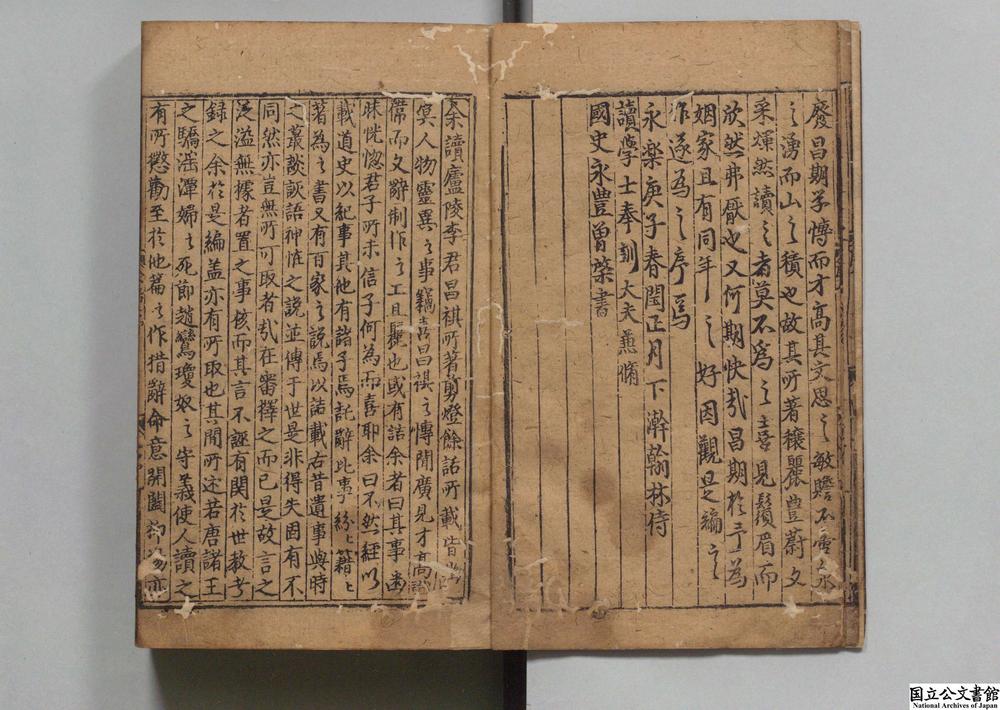 發昌期學博而才高其文思之敏贍不啻之水
之湧而山之積也故其所著穠麗豊蔚文
采煇然讀之者莫不爲之喜見鬚眉而
欣然弗厭也又何期快㢤昌期於予爲
姻家且有同年之好因觀是編之
作遂爲之序焉
永楽庚子春閏正月下澣翰林侍
讀學士奉訓大夫兼脩
國史永豊曽棨書
余讀廬陵李君昌祺所著剪燈餘話所載皆幽
冥人物靈異之事竊喜昌祺之慱聞廣見才高識
偹而文辭制作之工且麗也或有詰余者曰其事㓜
昧恍惚君子所未信子何為而喜耶余曰不然經以
載道史以紀事其他有諸子焉託辭比事紛〻籍〻
著為之書又有百家之說焉以誌載古昔遺事與時
之叢談詼語神恠之說並傳于世是非得失固有不
同然亦豈無所可取者㢤在審擇之而已是故言之
泛溢無據者置之事核而其言不誣有関於世敎者
録之余於是編盖亦有所取也其間所述若唐諸王
之驕滛潭婦之死節趙鸞瓊奴之守義使人讀之
有所懲勸至於他篇之作措辭命意開闔抑揚亦
国立公文書館
National Archives of Japan